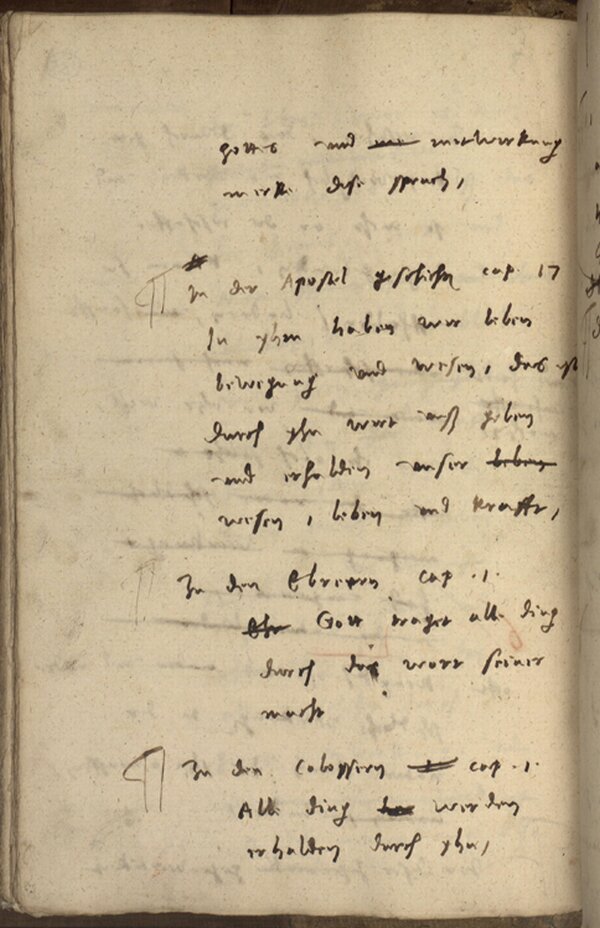 gottes und mitwirkung
merke dise spruch,
In der Apostel geschicht cap 17
In yhm haben wir leben
bewegung und wesen, das ist
durch yhn wirt auß geben
und erhalden unser leben
wesen, leben und krafft,
Zu den Ebreern cap .1.
Ehr Gott traget alle ding
durch das wort seiner
macht
Zu den Colossern cap .1.
Alle ding werden
erhalden durch yhn,